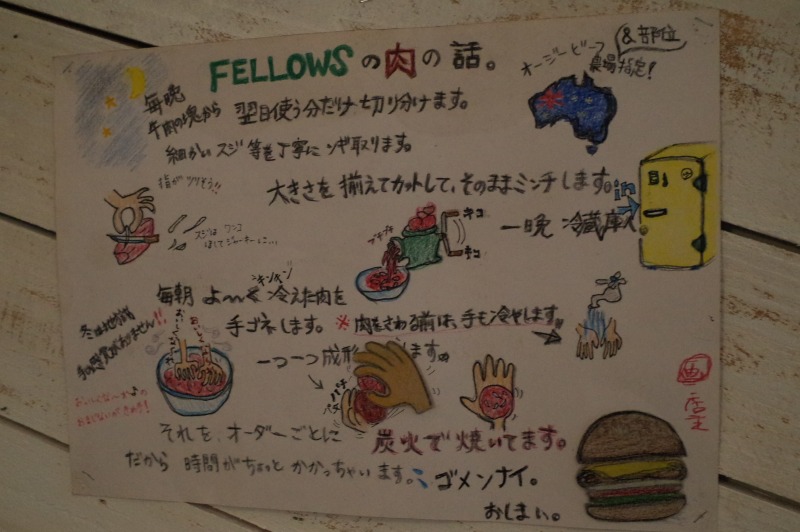 FELLOWSの肉の話。
オージービーフ
&部位
農場指定!
毎晩
牛肉の塊から 翌日使う分だけ切り分けます。
細かいスジ等を丁寧にソギ取ります。
指がツリそう!!
スジは ワンコ
大きさを揃えてカットして、そのままミンチします。
in
一晩 冷蔵庫へ
ブチブチ
キコ
キコ
毎朝 よ〜く キンキン 冷えた肉を
手ゴネします。 ※肉をさわる前は、手も冷やします。
冬は地獄
手の感覚がありません!!
一つ一つ成形 します。
パチ
パチ
おいしくな〜れ♪の
おまじないが
それを、オーダーごとに 炭火で焼いてます。
だから 時間がちょっと かかっちゃいます。ゴメンナイ。
おしまい。
画
店主